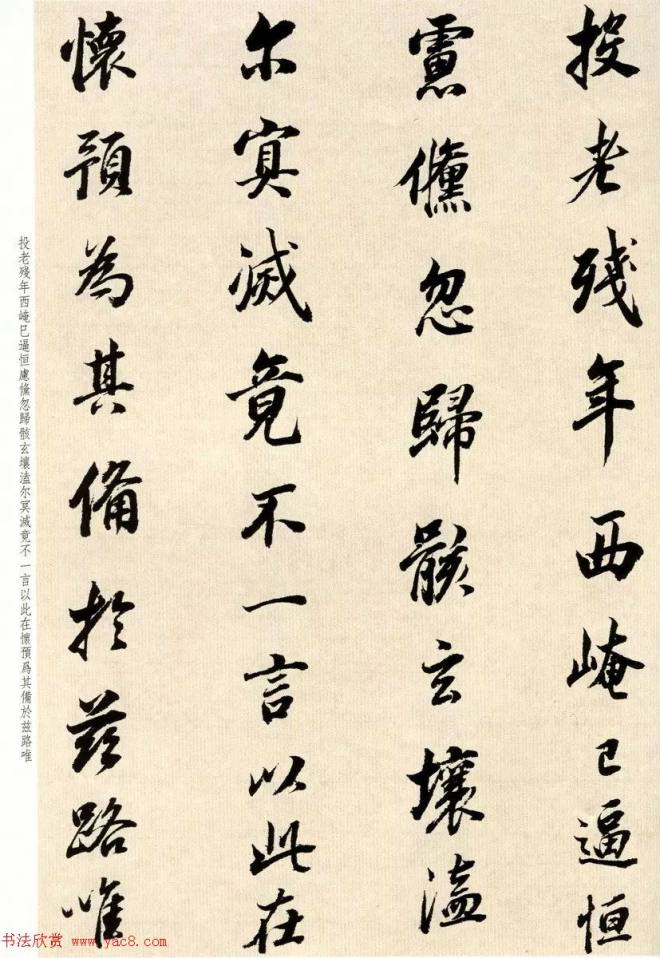 投老殘年西崦已逼恒
慮儻忽歸骸玄壤溘
尔冥滅竟不一言以此在
懷預為其備於兹路唯
投老殘年西崦已逼恒慮儻忽歸骸玄壤溘尔冥滅竟不一言以此在懷預爲其備於兹路唯
书法欣赏 www.yac8.com